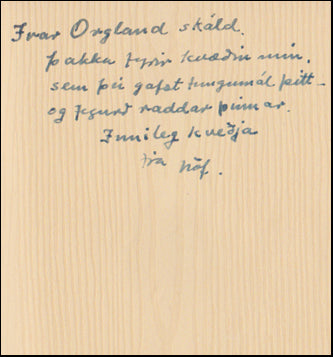 Ivar Orgland skáld.
Þakka fyrir kvæðin mín,
sem þú gafst tungumál þitt –
og fegurð raddar þinnar.
Innileg kveðja
frá höf.